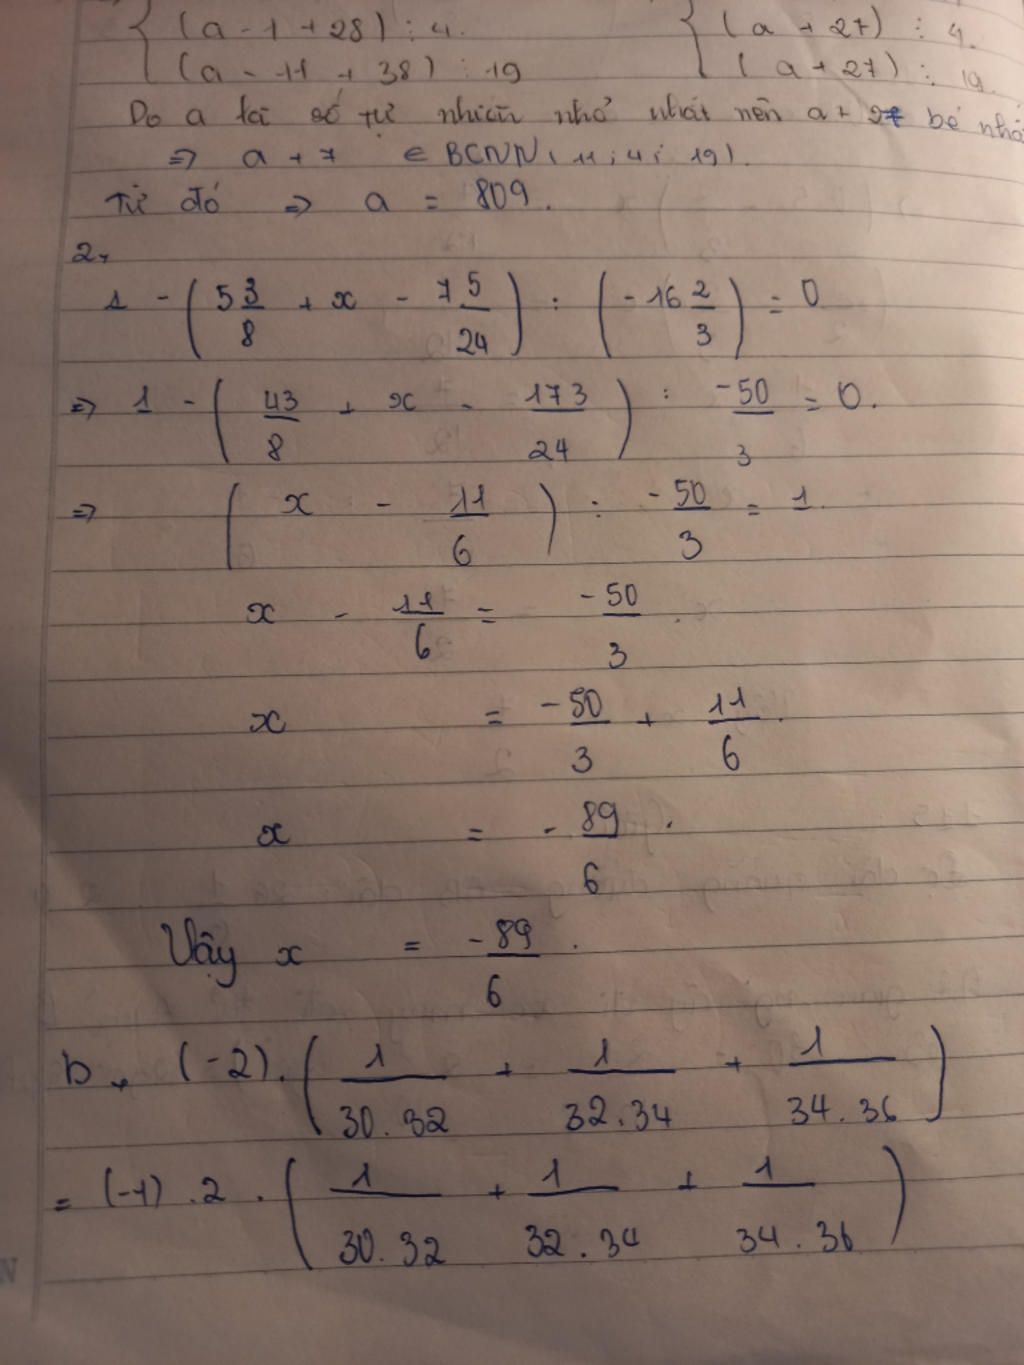 (a - 1 + 28) ⋮ 4. (a + 27) ⋮ 4.
(a - 11 + 38) ⋮ 19 (a + 27) ⋮ 19.
Do a là số tự nhiên nhỏ nhất nên a + 27 bé nhấ
=> a + 7 ∈ BCNN ( 11 ; 4 ; 19 ).
Từ đó => a = 809.
2,
1 - ( 5 3/8 + x - 7 5/24 ) : ( -16 2/3 ) = 0
=> 1 - ( 43/8 + x - 173/24 ) : -50/3 = 0.
=> ( x - 11/6 ) : -50/3 = 1.
x - 11/6 = -50/3.
x = -50/3 + 11/6.
x = - 89/6.
Vậy x = -89/6.
b, (-2). ( 1/30.32 + 1/32.34 + 1/34.36 )
= (-1) .2 . ( 1/30.32 + 1/32.34 + 1/34.36 )